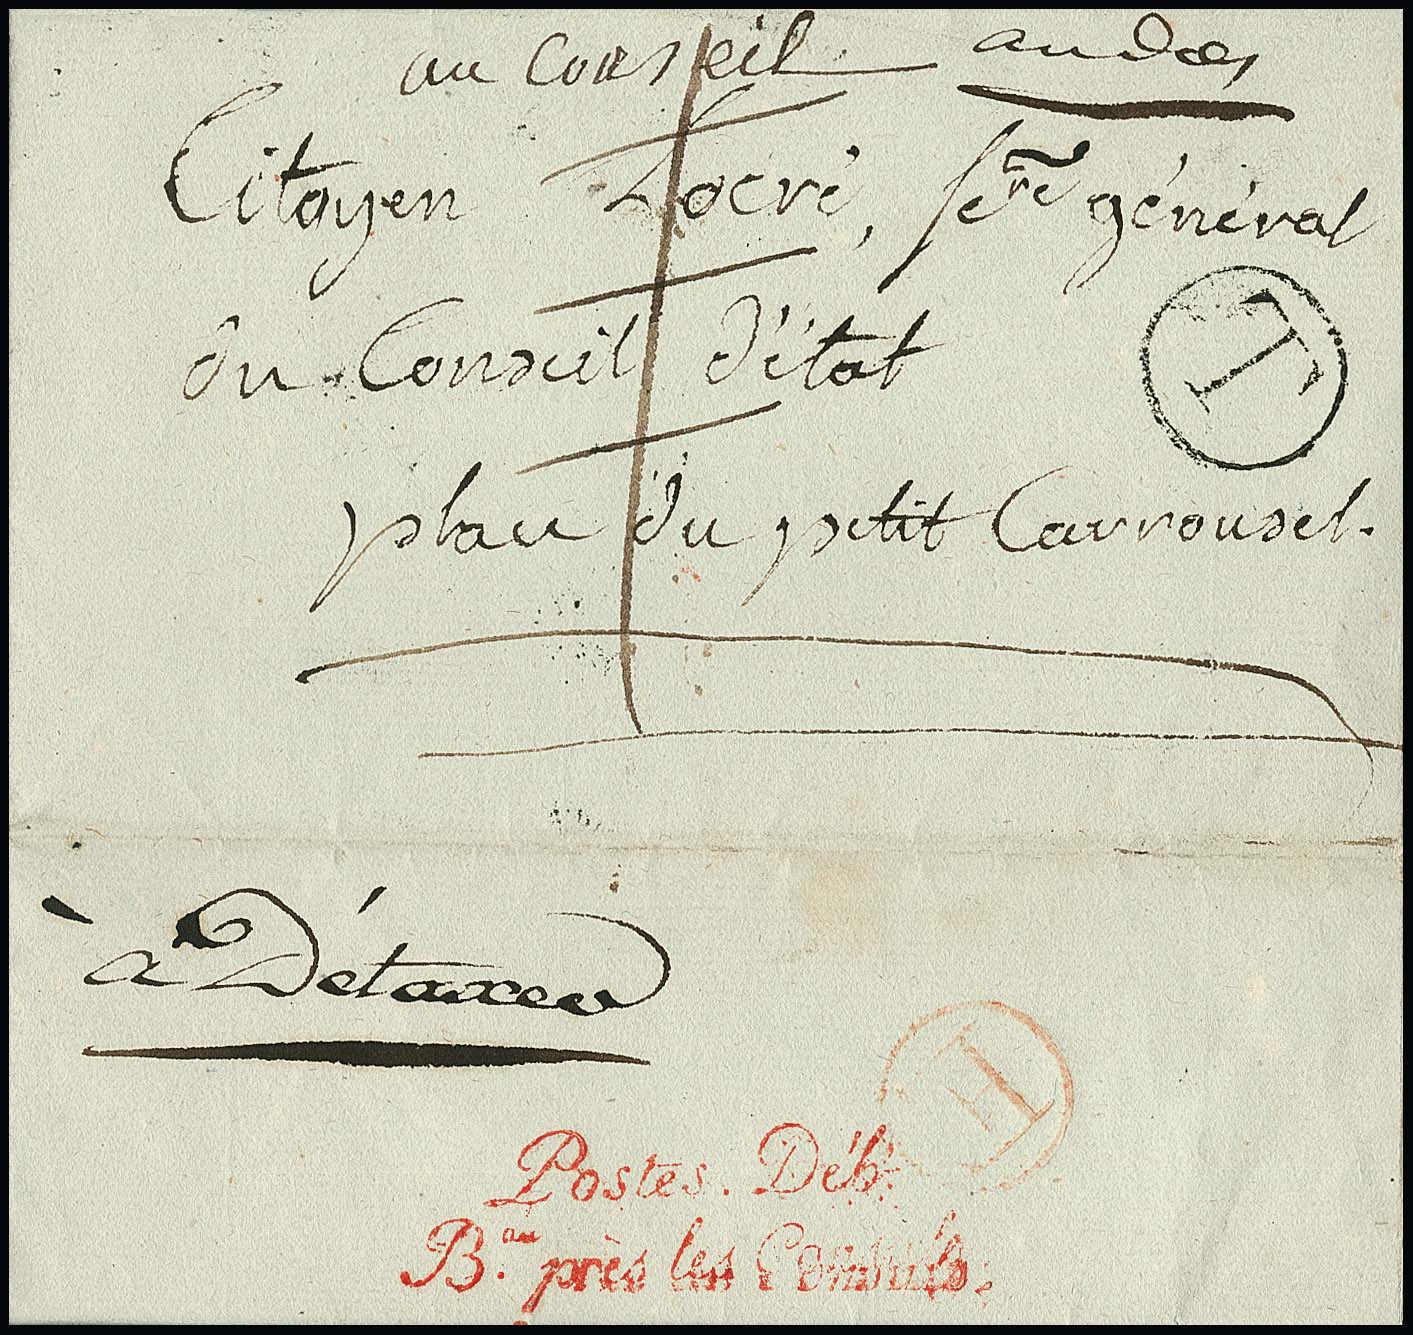 au Conseil
Citoyen Locré, Sere général
du Conseil d'état
place du petit Carrousel.
à Détaxer
L
H
Postes. Déb.
B.au près les Consuls.